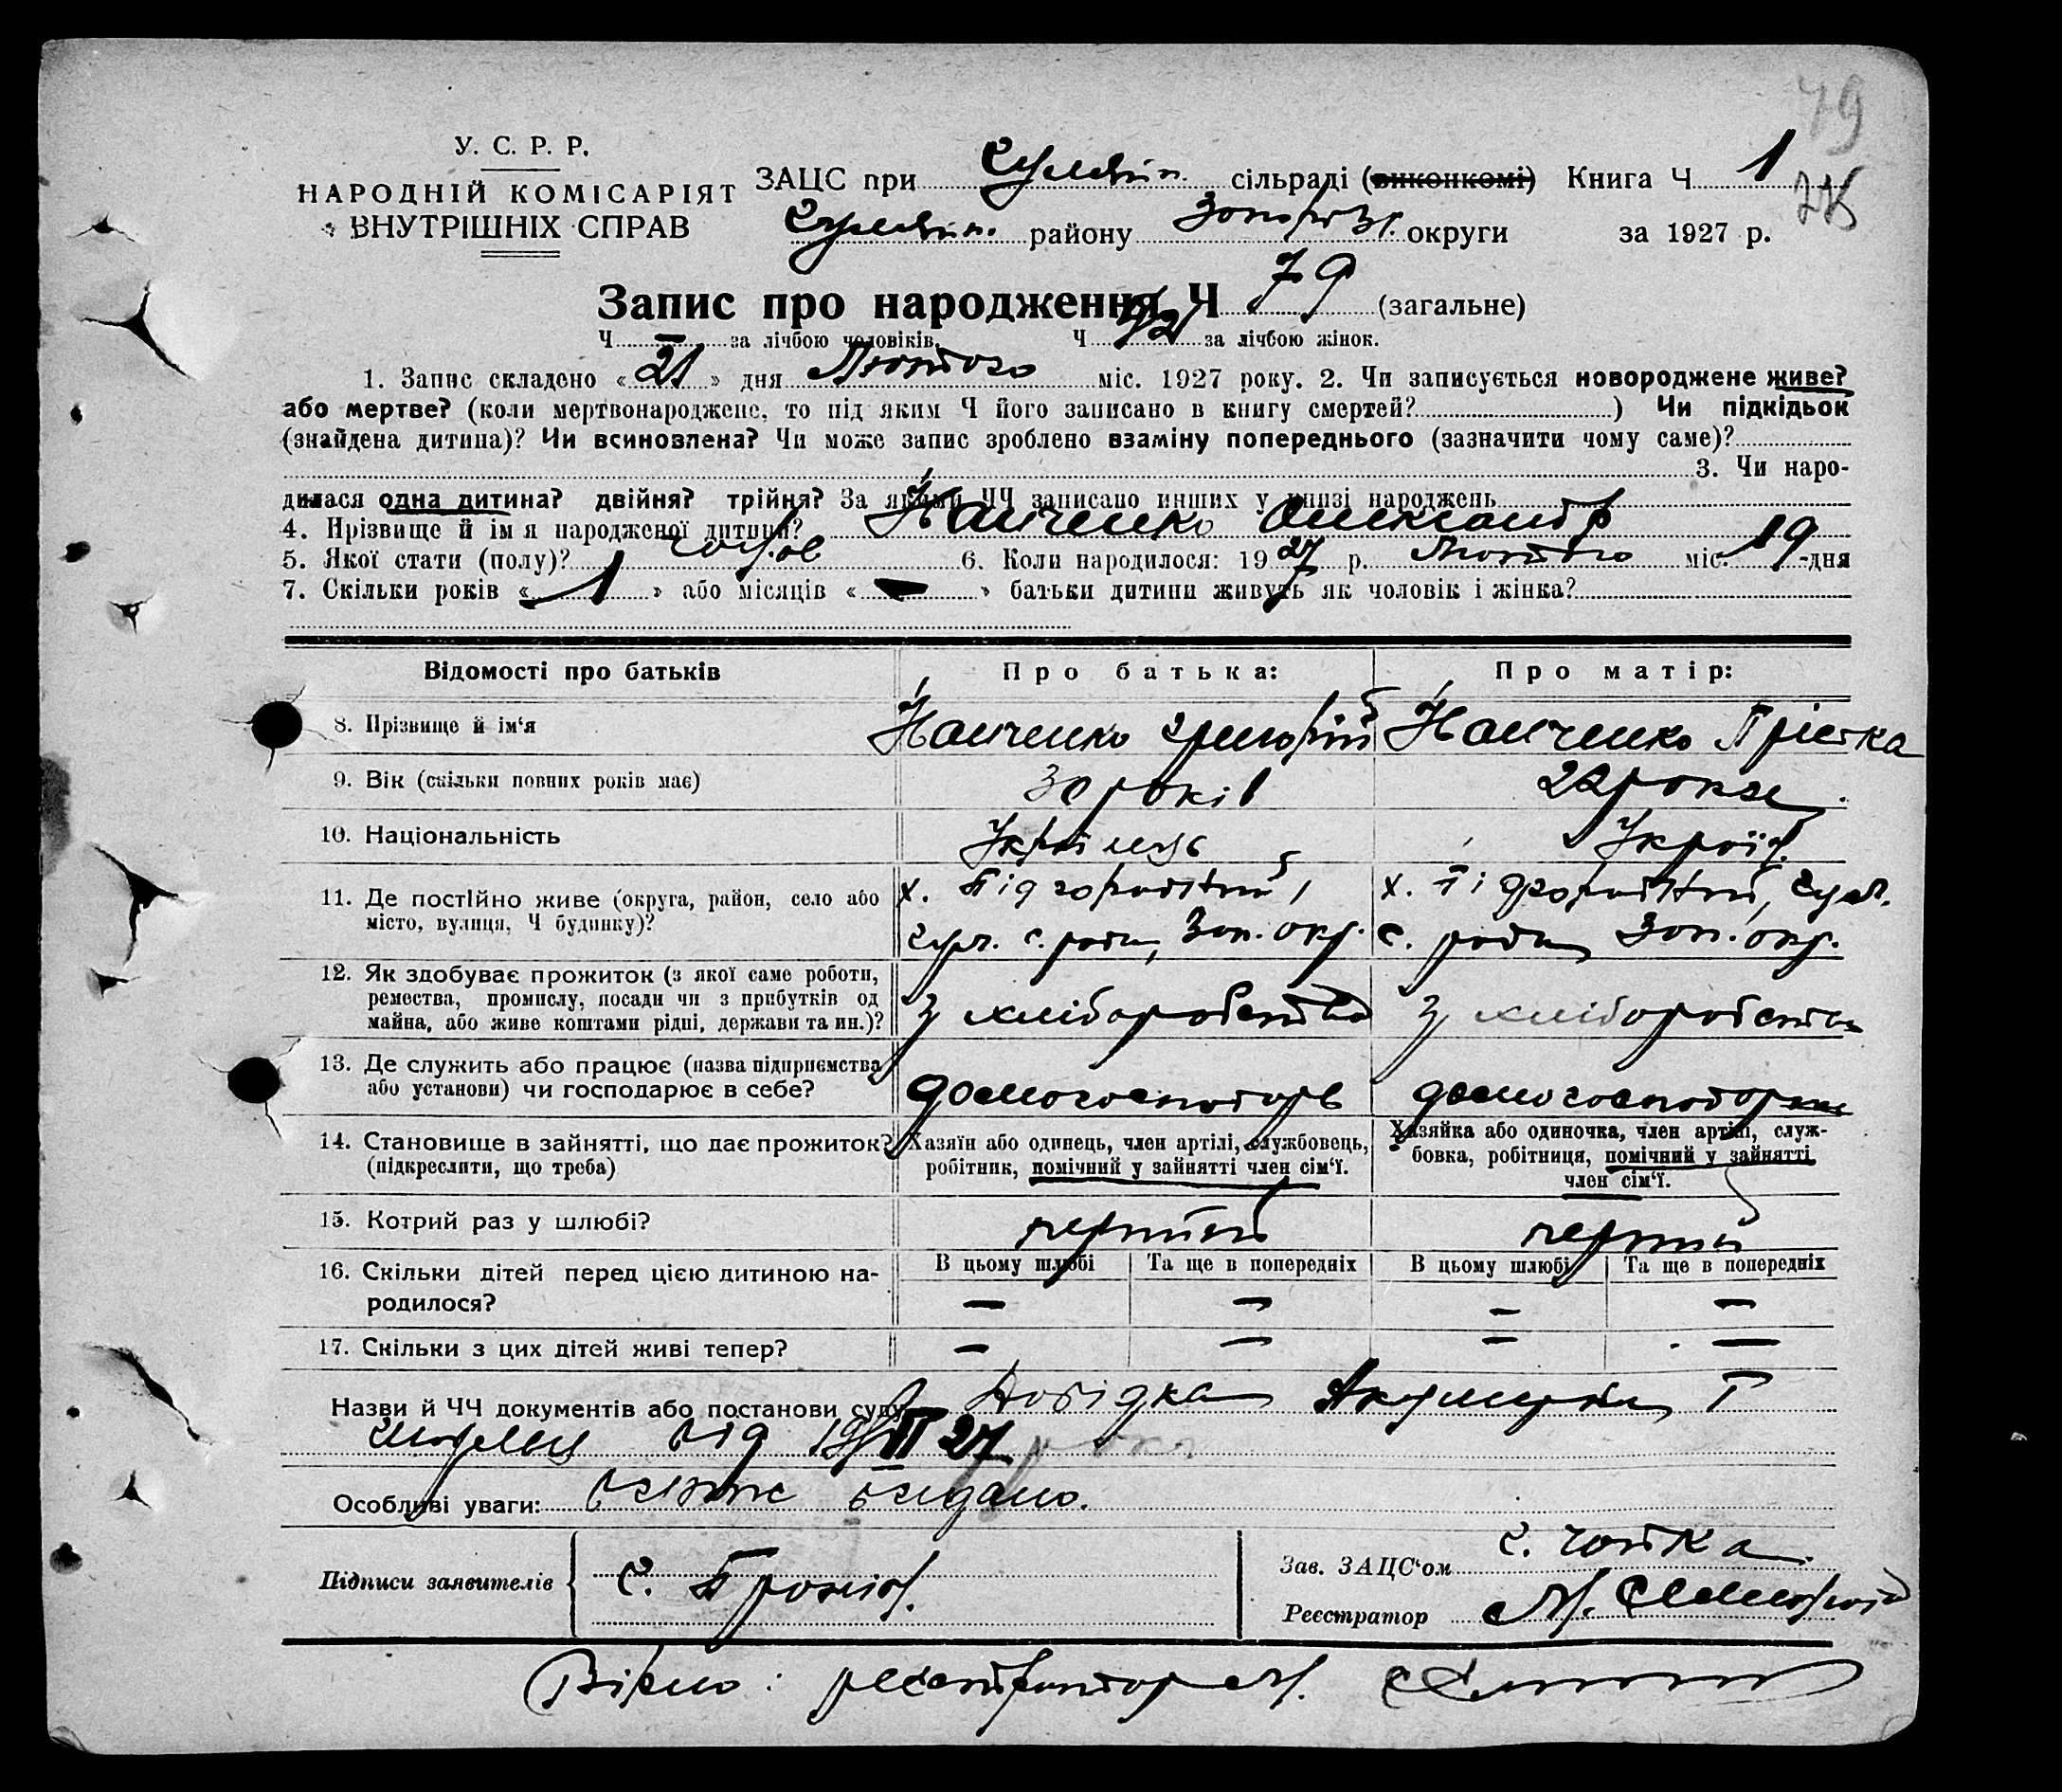 79
У. С. Р. Р.
НАРОДНІЙ КОМІСАРІЯТ
ВНУТРІШНІХ СПРАВ
ЗАЦС при сільраді (виконкомі) Книга Ч 1
району Запоріз. округи за 1927 р.
Запис про народження Ч 79 (загальне)
Ч — за лічбою чоловіків. Ч 42 за лічбою жінок.
1. Запис складено « 21 » дня Лютого міс. 1927 року. 2. Чи записується новороджене живе?
або мертве? (коли мертвонароджене, то під яким Ч його записано в книгу смертей? ) Чи підкідьок
(знайдена дитина)? Чи всиновлена? Чи може запис зроблено взаміну попереднього (зазначити чому саме)?
3. Чи наро-
дилася одна дитина? двійня? трійня? За якими ЧЧ записано инших у книзі народжень
4. Прізвище й ім я народженої дитини? Олександр
5. Якої стати (полу)? чолов 6. Коли народилося: 1927 р. Лютого міс. 19-дня
7. Скільки років « 1 » або місяців « — » батьки дитини живуть як чоловік і жінка?
Відомості про батьків Про батька: Про матір:
8. Прізвище й ім‘я Григорій Прістка
9. Вік (скільки повних років має) 30 років 22 роки
10. Національність Українць Україн.
11. Де постійно живе (округа, район, село або х. Підгородній, х. Підгородній,
місто, вулиця, Ч будинку)? с. ради, Зап. окр. с. ради Зап. окр.
12. Як здобуває прожиток (з якої саме роботи,
ремества, промислу, посади чи з прибутків од
майна, або живе коштами рідні, держави та ин.)? З хліборобства З хліборобства
13. Де служить або працює (назва підприємства
або установи) чи господарює в себе? домогосподарь домогосподарка
14. Становище в зайнятті, що дає прожиток? Хазяїн або одинець, член артілі, службовець, Хазяйка або одиночка, член артілі, служ-
(підкреслити, що треба) робітник, помічний у зайнятті член сім‘ї. бовка, робітниця, помічний у зайнятті
член сім‘ї.
15. Котрий раз у шлюбі? перший перший
В цьому шлюбі Та ще в попередніх В цьому шлюбі Та ще в попередніх
16. Скільки дітей перед цією дитиною на-
родилося? — — — —
17. Скільки з цих дітей живі тепер? — — — —
Назви й ЧЧ документів або постанови суду Довідка Акушерки
від 19/II 27 року
Особливі уваги: видано.
Підписи заявителів С.
Зав. ЗАЦС‘ом
Реєстратор М.
Вірно: реєстратор М.